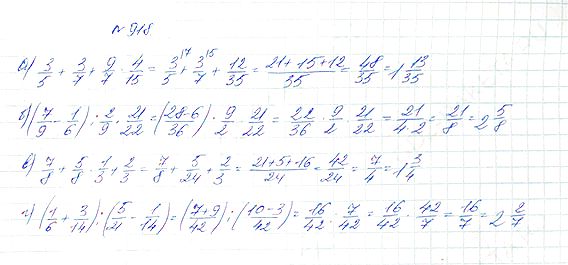 № 918.
а) 3/5 + 3/7 + 9/7 · 4/15 = 3/5 + 3/7 + 12/35 = (21 + 15 + 12)/35 = 48/35 = 1 13/35
б) (7/9 - 1/6) : 2/9 · 21/22 = ((28-6)/36) · 9/2 · 21/22 = 22/36 · 9/2 · 21/22 = 21/(4·2) = 21/8 = 2 5/8
в) 7/8 + 5/8 · 1/3 + 2/3 = 7/8 + 5/24 + 2/3 = (21+5+16)/24 = 42/24 = 7/4 = 1 3/4
г) (1/6 + 3/14) : (5/21 - 1/14) = ((7+9)/42) : ((10-3)/42) = 16/42 : 7/42 = 16/42 · 42/7 = 16/7 = 2 2/7